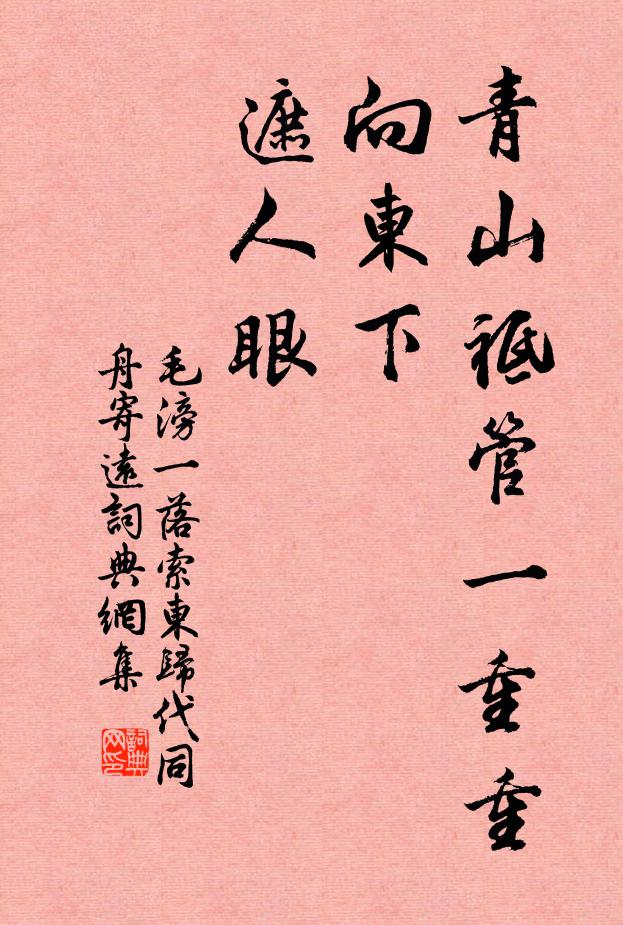 青山祗管一重重
向東下
遮人眼
毛滂一落索東歸代同
舟寄遠詞典網集
詞典
网印